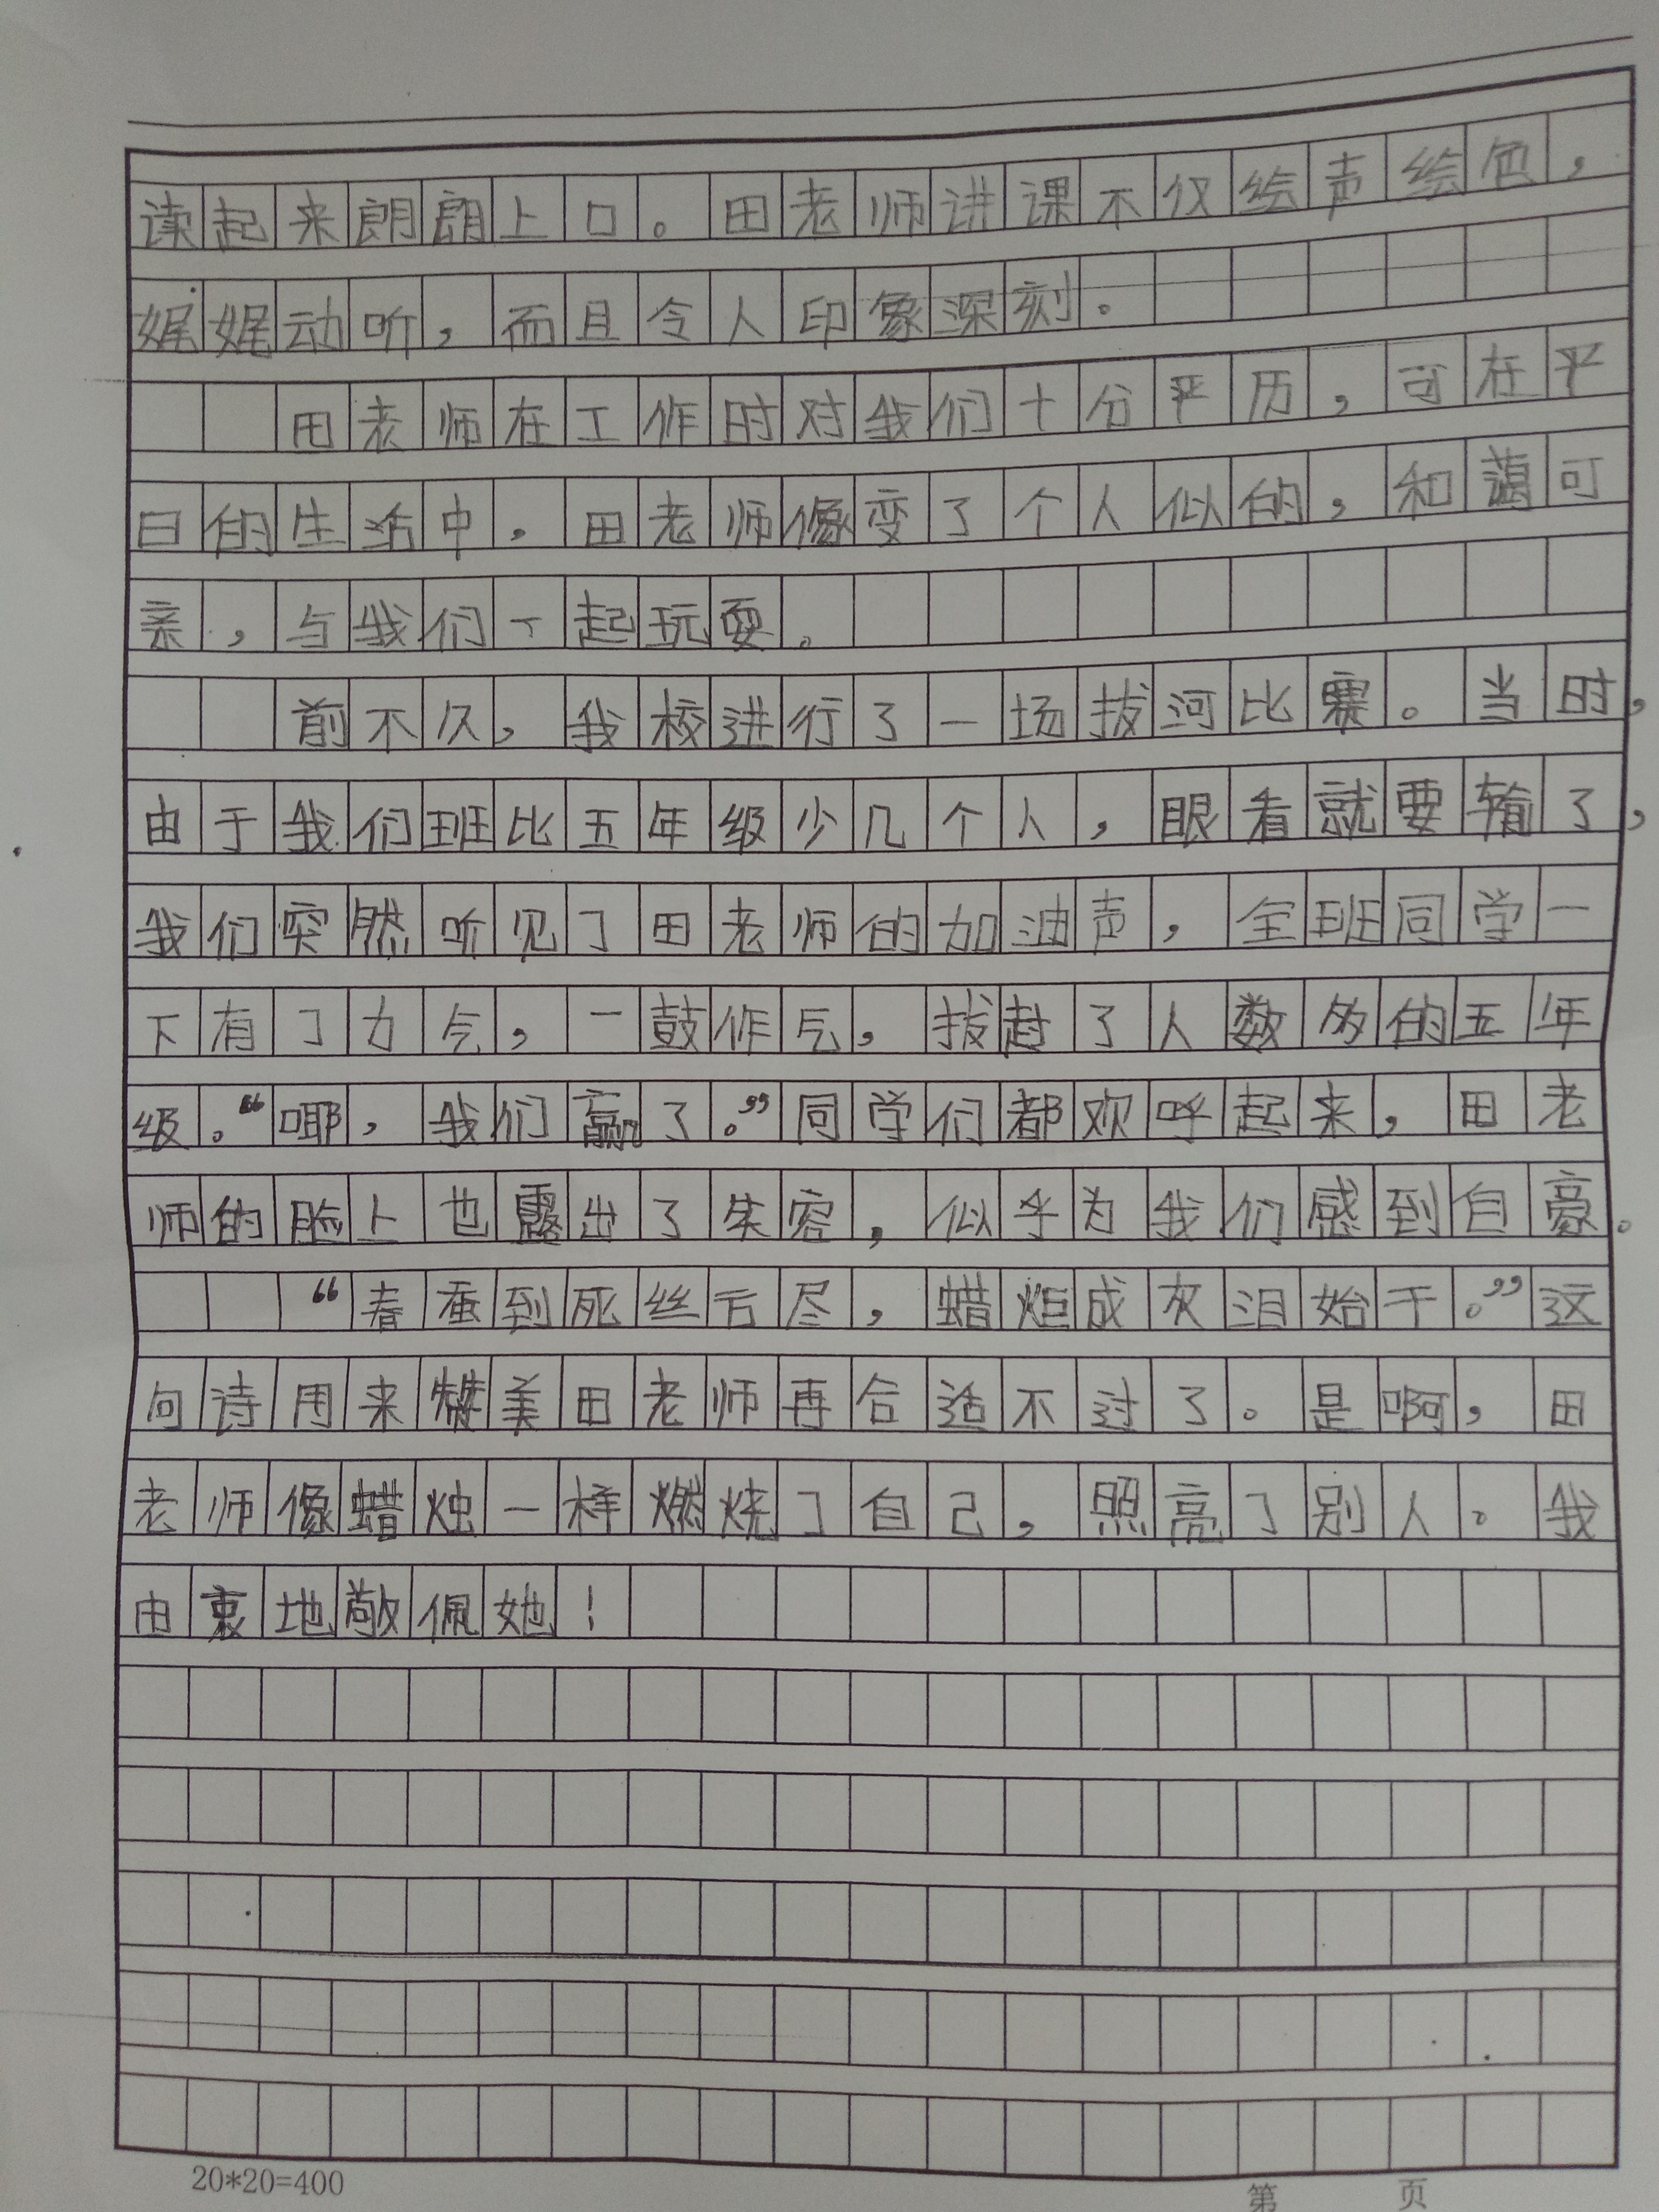 读起来朗朗上口。田老师讲课不仅绘声绘色，
娓娓动听，而且令人印象深刻。
田老师在工作时对我们十分严历，可在平
日的生活中，田老师像变了个人似的，和蔼可
亲，与我们一起玩耍。
前不久，我校进行了一场拔河比赛。当时，
由于我们班比五年级少几个人，眼看就要输了，
我们突然听见了田老师的加油声，全班同学一
下有了力气，一鼓作气，拔赴了人数多的五年
级。“哪，我们赢了。”同学们都欢呼起来，田老
师的脸上也露出了笑容，似乎为我们感到自豪。
“春蚕到死丝方尽，蜡炬成灰泪始干。”这
句诗用来赞美田老师再合适不过了。是啊，田
老师像蜡烛一样燃烧了自己，照亮了别人。我
由衷地敬佩她！
20*20=400
第 页